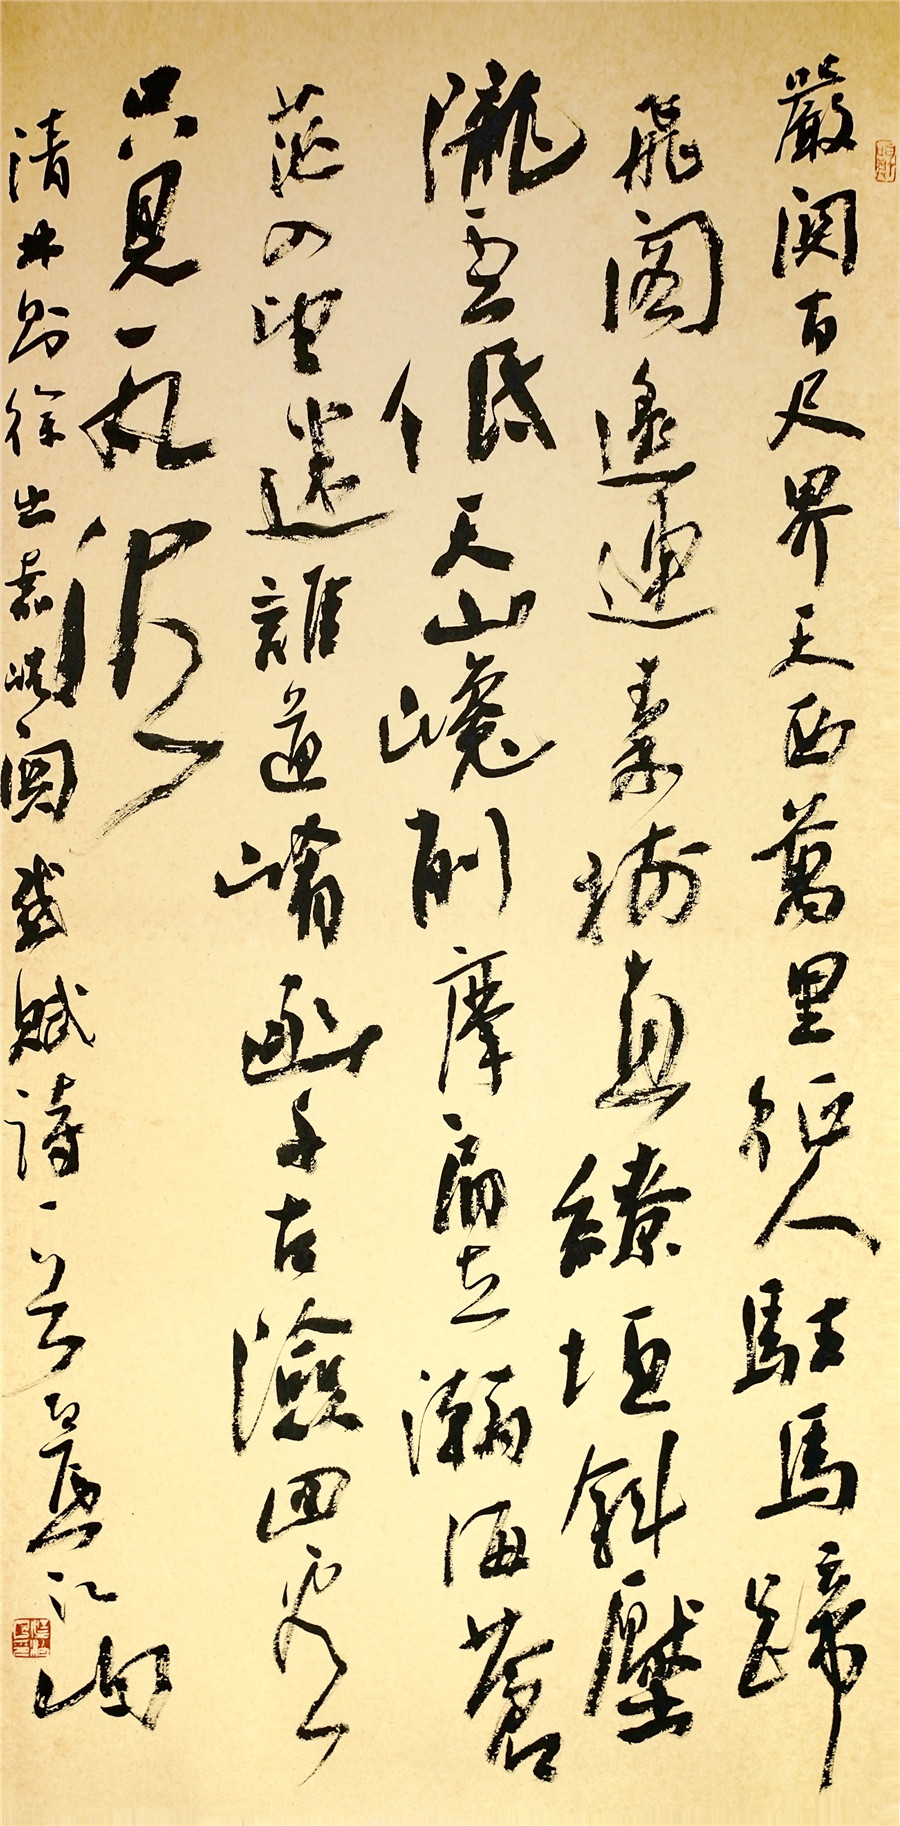 嚴關百尺界天西萬里征人駐馬蹄
飛閣遙連秦樹直繚垣斜壓
隴雲低天山巉削摩肩立瀚海蒼
茫入望迷誰道崤函千古險回看
只見一丸泥
清林則徐出嘉峪關感賦詩一首